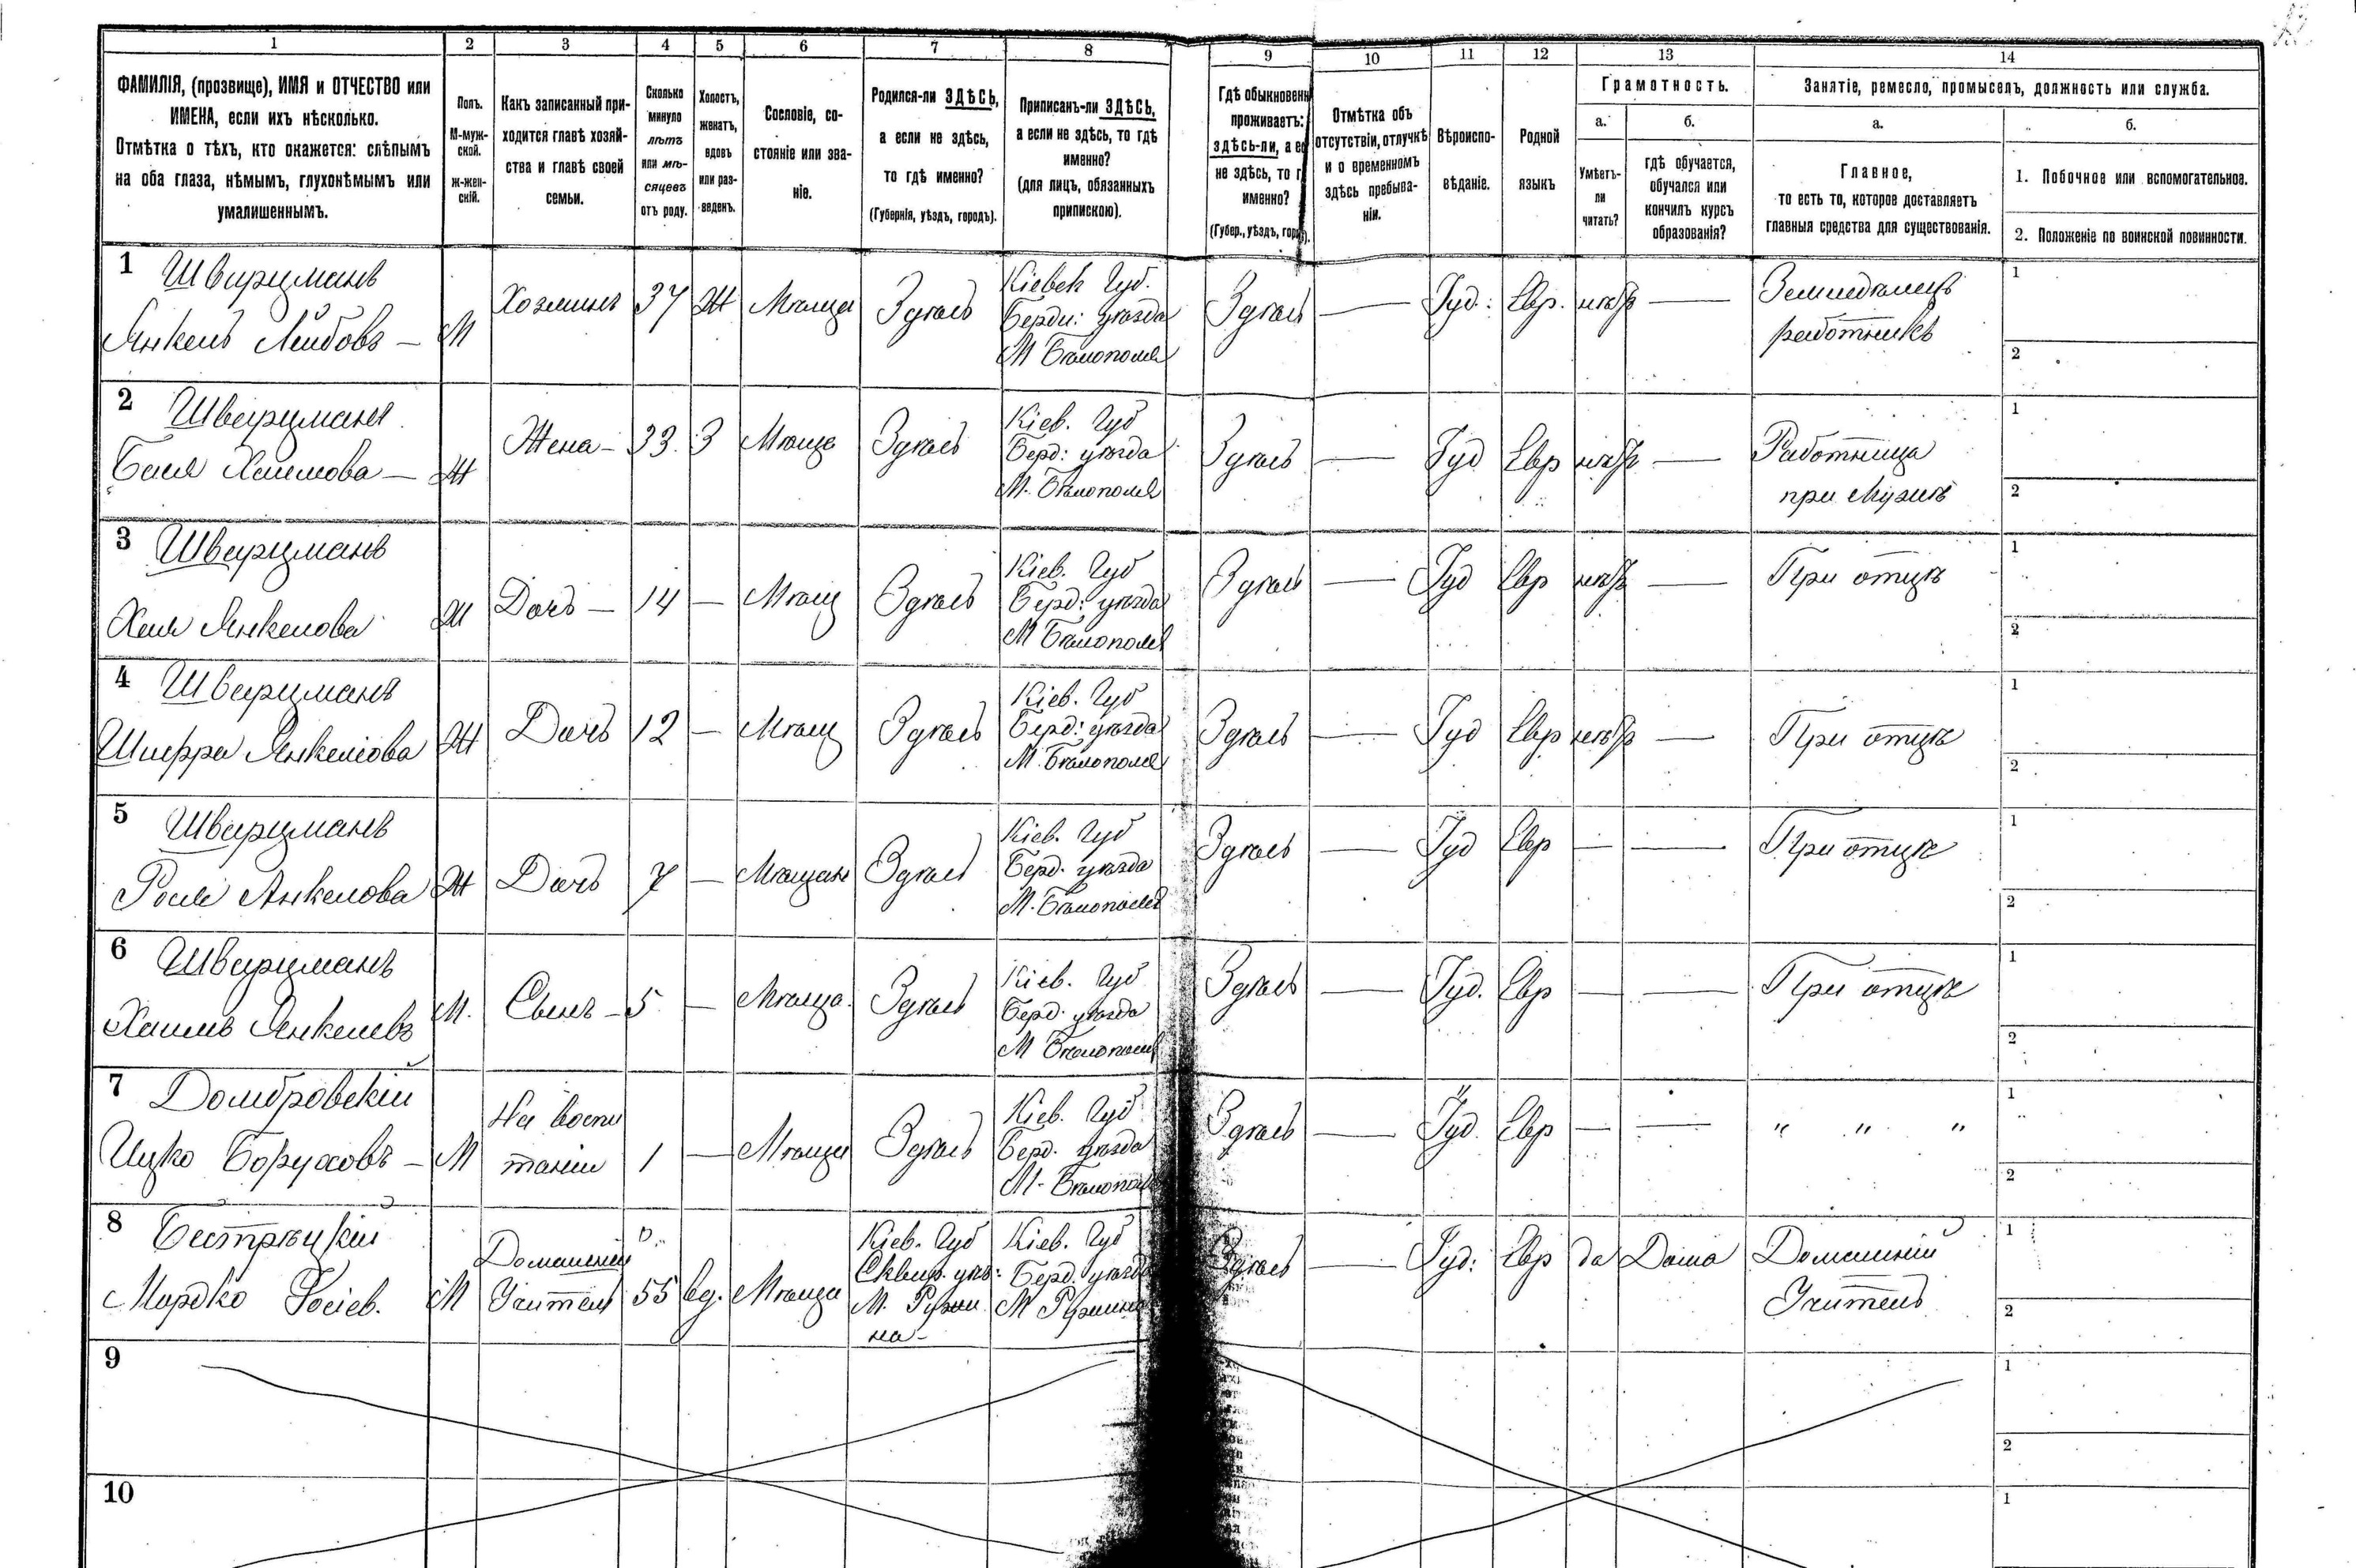 1 2 3 4 5 6 7 8 9 10 11 12 13 14
ФАМИЛІЯ, (прозвище), ИМЯ и ОТЧЕСТВО или
ИМЕНА, если ихъ нѣсколько.
Отмѣтка о тѣхъ, кто окажется: слѣпымъ
на оба глаза, нѣмымъ, глухонѣмымъ или
умалишеннымъ.
Полъ.
М-муж-
ской.
Ж-жен-
скій.
Какъ записанный при-
ходится главѣ хозяй-
ства и главѣ своей
семьи.
Сколько
минуло
лѣтъ
или мѣ-
сяцевъ
отъ роду.
Холостъ,
женатъ,
вдовъ
или раз-
веденъ.
Сословіе, со-
стояніе или зва-
ніе.
Родился-ли ЗДѢСЬ,
а если не здѣсь,
то гдѣ именно?
(Губернія, уѣздъ, городъ).
Приписанъ-ли ЗДѢСЬ,
а если не здѣсь, то гдѣ
именно?
(для лицъ, обязанныхъ
припискою).
Гдѣ обыкновенн
проживаетъ:
здѣсь-ли, а ес
не здѣсь, то г
именно?
(Губер., уѣздъ, горо).
Отмѣтка объ
отсутствіи, отлучкѣ
и о временномъ
здѣсь пребыва-
ніи.
Вѣроиспо-
вѣданіе.
Родной
языкъ
Грамотность.
а.
Умѣетъ-
ли
читать?
б.
гдѣ обучается,
обучался или
кончилъ курсъ
образованія?
Занятіе, ремесло, промыселъ, должность или служба.
а.
Главное,
то есть то, которое доставляетъ
главныя средства для существованія.
б.
1. Побочное или вспомогательное.
2. Положеніе по воинской повинности.
1 Шварцманъ
Янкель Лейбовъ — М
Хозяинъ 37 Ж Мѣща Здѣсь
Кіевск Губ.
Берди: уѣзда
М Бѣлополя
Здѣсь — Іуд: Евр. нѣтъ —
Земледѣлецъ
работникъ
1
2
2 Шварцманъ
Бася Хаимова — Ж
Жена - 33. З Мѣща Здѣсь
Кіев. Губ
Берд: уѣзда
М. Бѣлополя
Здѣсь — Іуд Евр нѣтъ —
Работница
при мужѣ
1
2
3 Шварцманъ
Хая Янкелова Ж
Дочь — 14 — Мѣщ Здѣсь
Кіев. Губ
Берд: уѣзда
М Бѣлополя
Здѣсь — Іуд Евр нѣтъ —
При отцѣ
1
2
4 Шварцманъ
Шифра Янкелева Ж
Дочь 12 — Мѣщ Здѣсь
Кіев. Губ
Берд: уѣзда
М. Бѣлополя
Здѣсь — Іуд Евр нѣтъ —
При отцѣ
1
2
5 Шварцманъ
Янкелова Ж
Дочь 7 — Мѣщан Здѣсь
Кіев. Губ
Берд. уѣзда
М. Бѣлополя
Здѣсь — Іуд Евр — —
При отцѣ
1
2
6 Шварцманъ
Хаимъ Янкелевъ М.
Сынъ - 5 — Мѣща. Здѣсь
Кіев. Губ
Берд. уѣзда
М Бѣлополя
Здѣсь — Іуд. Евр — —
При отцѣ
1
2
7 Домбровскій
Ицко Боруховъ — М
На воспи
таніи 1 — Мѣща Здѣсь
Кіев. Губ
Берд. уѣзда
М. Бѣлополя
Здѣсь — Іуд. Евр — —
" " "
1
2
8
Мордко Іосіев. М
Домашній
Учитель 55 вд. Мѣща
Кіев. Губ
Сквир. уѣз:
М. Ружи
на-
Кіев. Губ
Берд. уѣзда
М Ружина
Здѣсь — Іуд: Евр да Дома
Домашній
Учитель
1
2
9
1
2
10
1